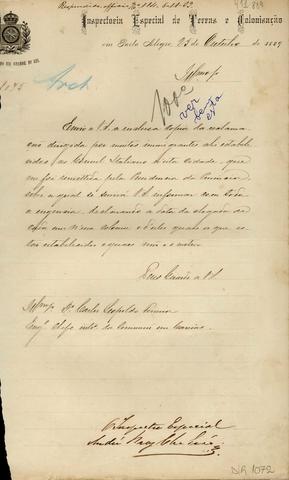 Respondido officio Nº 114. 6-11-89
Inspectoria Especial de Terras e Colonisação
em Porto Alegre, 25 de Outubro de 1889
1095 Arch
Illmo Sr
ver
esta
Envio a V.S. a inclusa copia da reclama-
ção dirigida por muitos immigrantes ahi estabele-
cidos, ao Consul Italiano nesta cidade, que
me foi remettida pela Presidencia da Provincia,
sobre a qual se servirá V.S. informar com toda
a urgencia, declarando a data da chegada de
cada um n'essa colonia e entre quaes o que es-
tão estabelecidos e quaes não o estão.
Deus Guarde a V.S.
Illmo Sr. Dr. Carlos Leopoldo
Engº Chefe intº da Commissão em Caxias.
O Inspector Especial
DIR 1072